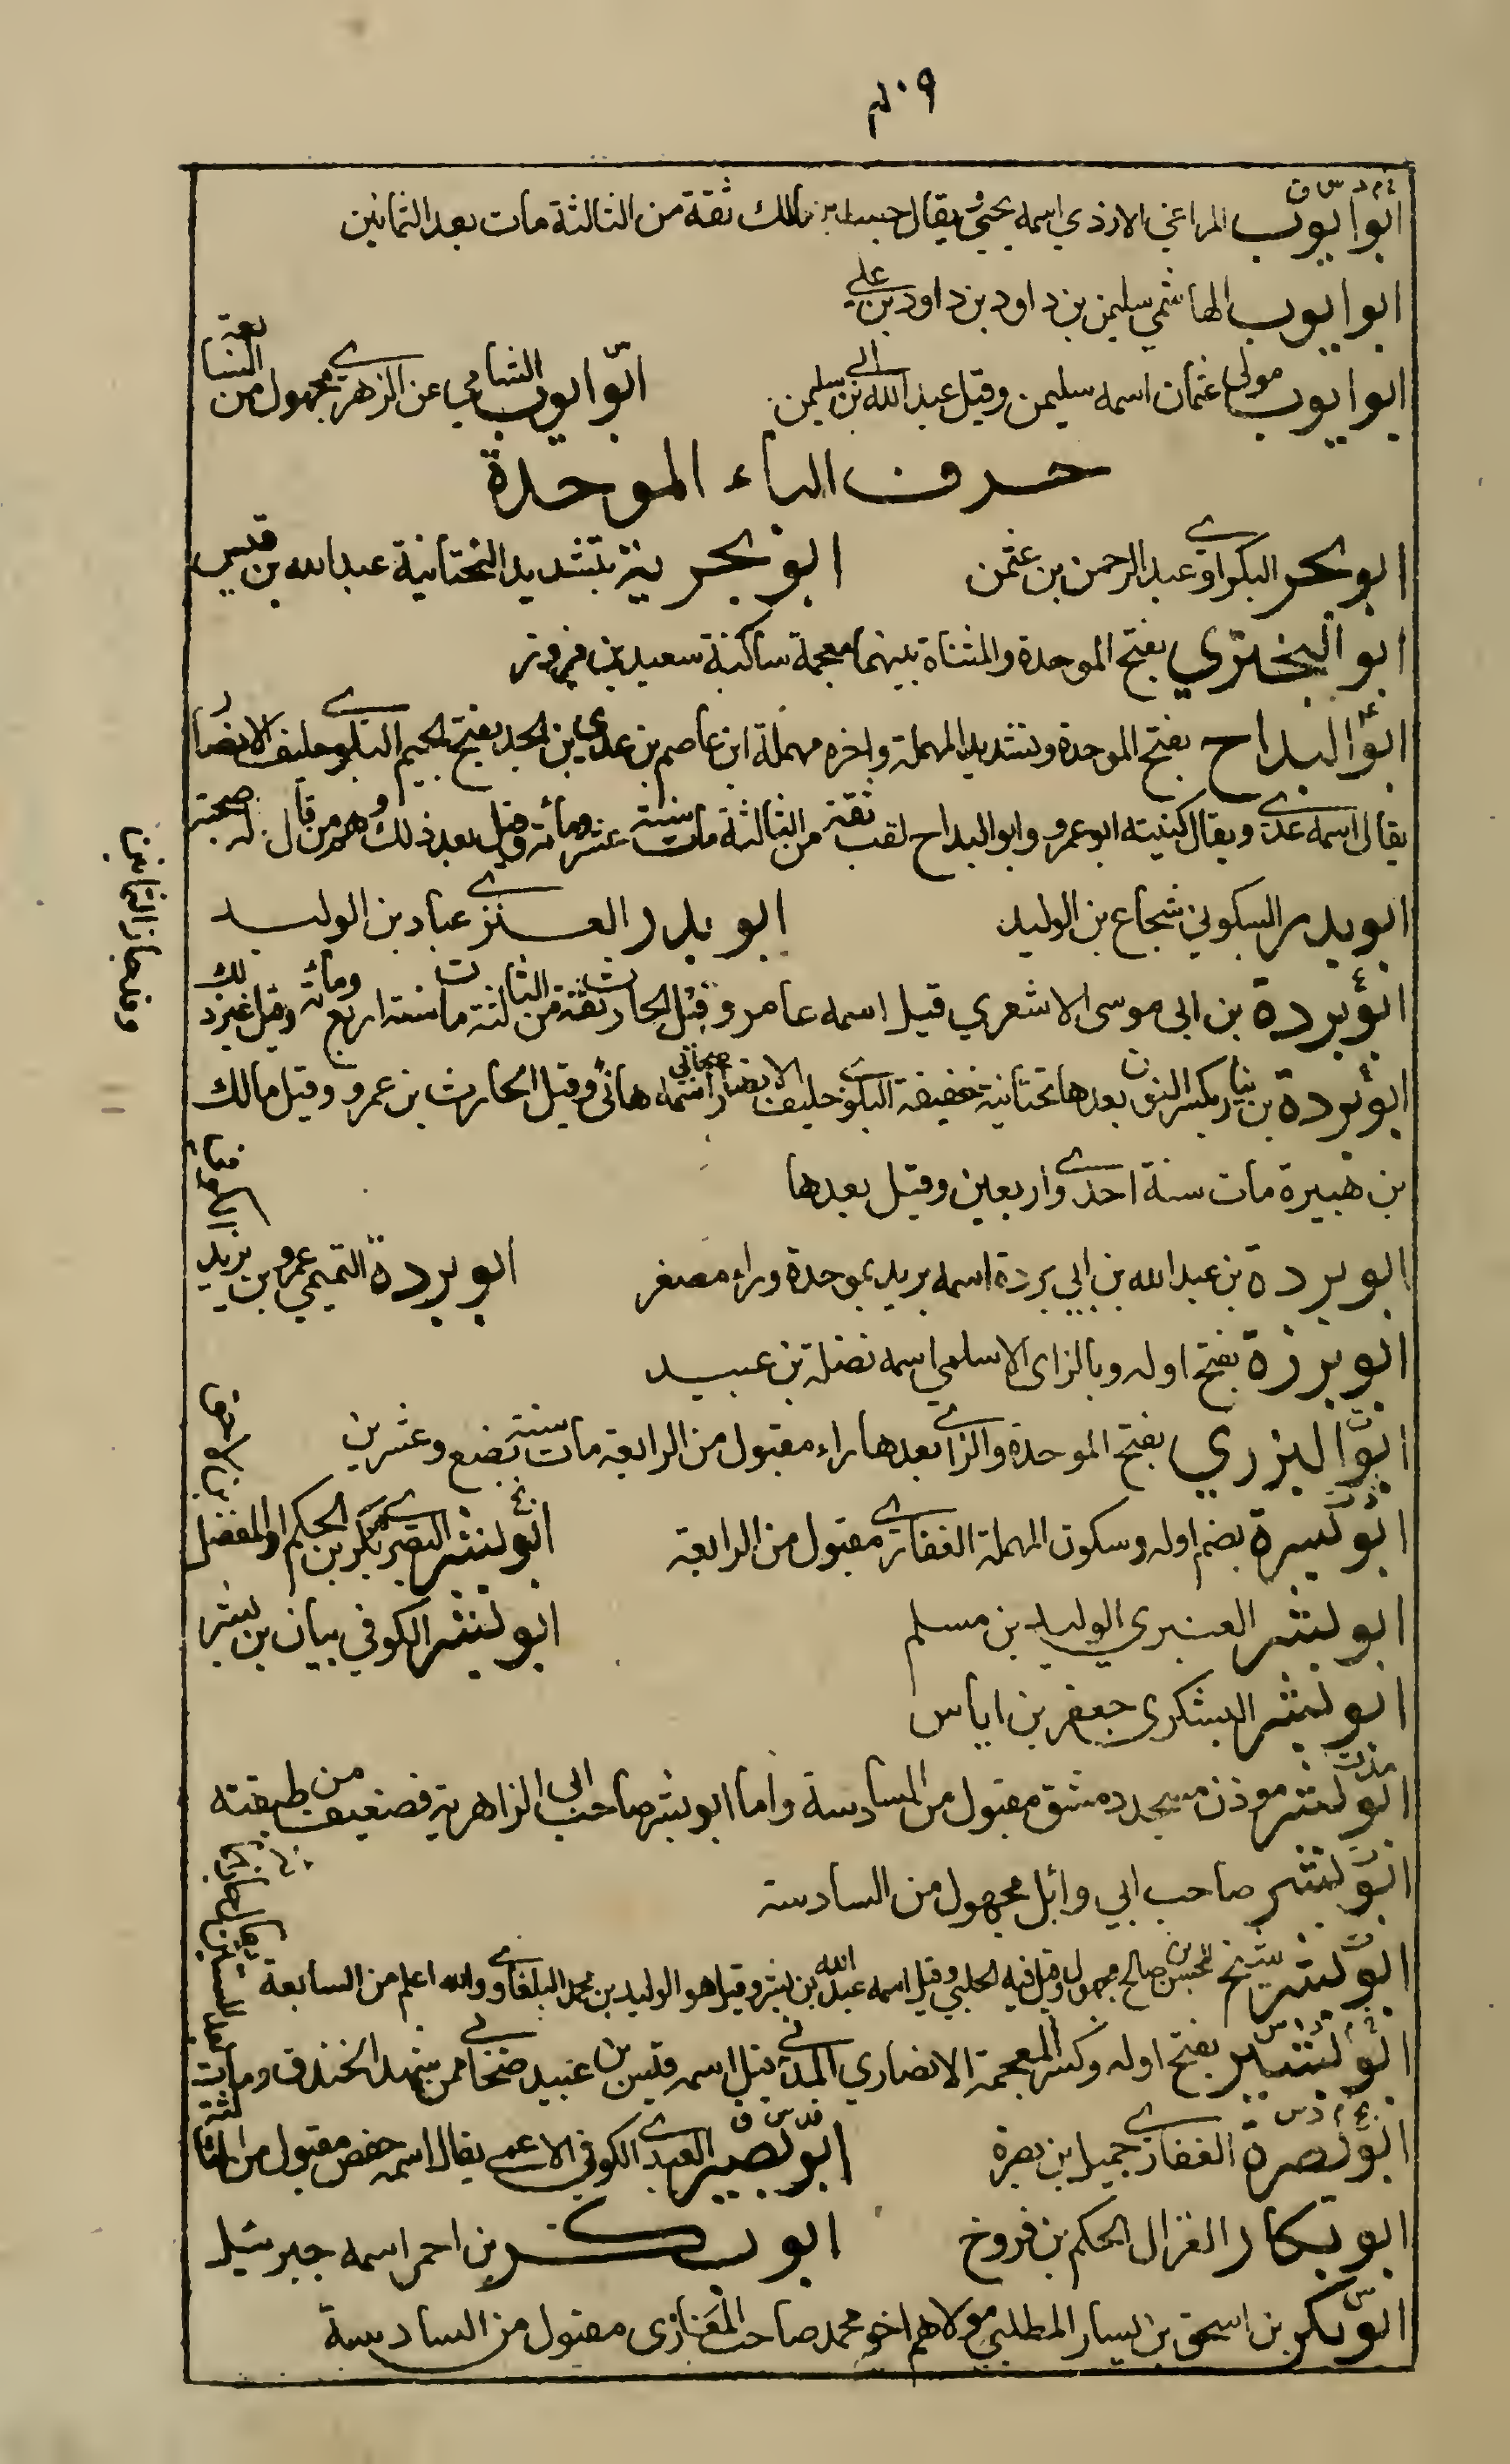 ٤٠٩
خ م د س ق
ابو ايوب المراغي الازدي اسمه يحيى ويقال حبيب بن مالك ثقة من الثالثة مات بعد الثمانين
ابو ايوب الهاشمي سليمن بن داود بن داود بن علي
ابو ايوب مولى عثمان اسمه سليمن وقيل عبد الله بن ابي سليمن
ابو ايوب الشامي عن الزهري مجهول من السابعة
حرف الباء الموحدة
ابو بحر البكراوي عبد الرحمن بن عثمن
ابو بحرية بتشديد التحتانية عبد الله بن قيس
ابو البختري بفتح الموحدة والمثناة بينهما معجمة ساكنة سعيد بن فيروز
ابو البداح بفتح الموحدة وتشديد المهملة واخره مهملة ابن عاصم بن عدي بن الجد بفتح الجيم البلوي حليف الانصار
يقال اسمه عدي ويقال كنيته ابو عمرو وابو البداح لقب ثقة من الثالثة مات سنة عشر ومائة وقيل بعد ذلك ووهم من قال له صحبة
ابو بدر السكوني شجاع بن الوليد
ابو بدر العنزي عباد بن الوليد
ابو بردة بن ابي موسى الاشعري قيل اسمه عامر وقيل الحارث ثقة من الثالثة مات سنة اربع ومائة وقيل غير ذلك
ابو بردة بن نيار بكسر النون بعدها تحتانية خفيفة البلوي حليف الانصار صحابي اسمه هانئ وقيل الحارث بن عمرو وقيل مالك
بن هبيرة مات سنة احدى واربعين وقيل بعدها
ابو بردة بن عبد الله بن ابي بردة اسمه بريد بموحدة وراء مصغر
ابو بردة التميمي عمرو بن يزيد
ابو برزة بفتح اوله وبالزاى الاسلمي اسمه نضلة بن عبيد
ابو البزري بفتح الموحدة والزاي بعدها راء مقبول من الرابعة مات سنة بضع وعشرين
ابو بسرة بضم اوله وسكون المهملة الغفاري مقبول من الرابعة
ابو بشر البصري بكر بن الحكم او المفضل
ابو بشر العنبري الوليد بن مسلم
ابو بشر الكوفي بيان بن بشر
ابو بشر اليشكري جعفر بن اياس
ابو بشر موذن مسجد دمشق مقبول من السادسة واما ابو بشر صاحب ابي الزاهرية فضعيف من طبقته
ابو بشر صاحب ابي وائل مجهول من السادسة
ابو بشر شيخ للحسن بن صالح مجهول وقيل فيه الحلبي وقيل اسمه عبد الله بن بشر وقيل هو الوليد بن محمد البلقاوي والله اعلم من السابعة
ابو بشير بفتح اوله وكسر المعجمة الانصاري المدني قيل اسمه قيس بن عبيد صحابي شهد الخندق ومات
بعد الستين
ابو بصرة الغفاري جميل بن بصرة
ابو بصير العبدي الكوفي الاعمى يقال اسمه حفص مقبول من الثالثة
ابو بكار الغزال الحكم بن فروخ
ابو بكر بن احمر اسمه جبرئيل
ابو بكر بن اسحق بن يسار المطلبي مولاهم اخو محمد صاحب المغازى مقبول من السادسة